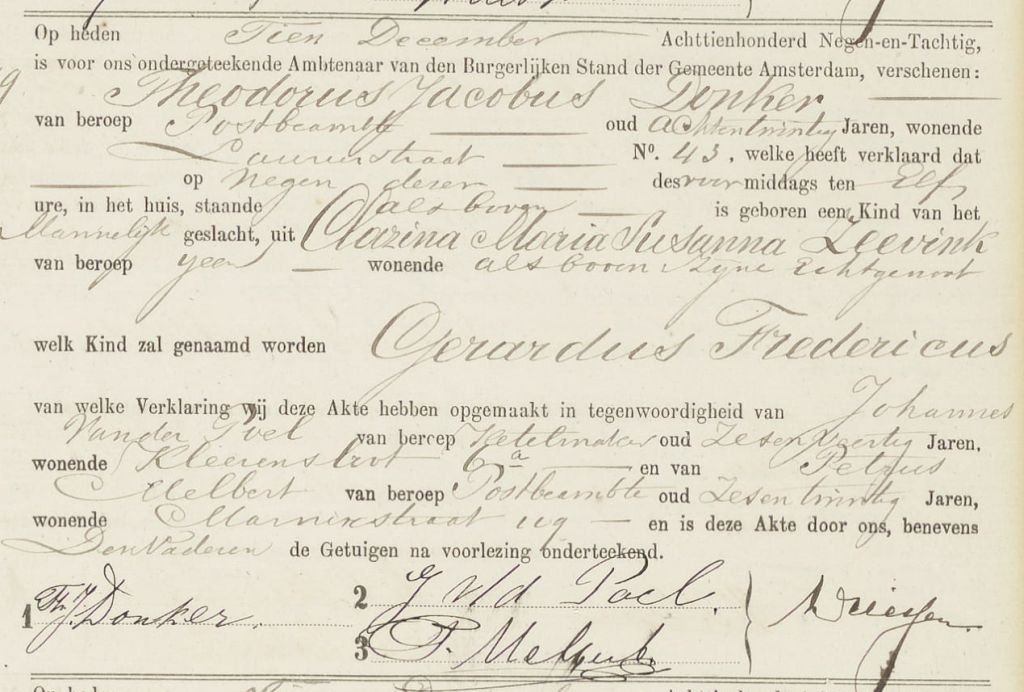 Op heden Tien December Achttienhonderd Negen-en-Tachtig,
is voor ons ondergeteekende Ambtenaar van den Burgerlijken Stand der Gemeente Amsterdam, verschenen:
Theodorus Jacobus Donker
van beroep Postbeambte oud achtentwintig Jaren, wonende
Laurierstraat No. 43, welke heeft verklaard dat
op negen dezer des voor middags ten Elf
ure, in het huis, staande als boven is geboren een Kind van het
Mannelijk geslacht, uit Clazina Maria Susanna Zeevink
van beroep geen wonende als boven Zijne Echtgenoot
welk Kind zal genaamd worden Gerardus Fredericus
van welke Verklaring wij deze Akte hebben opgemaakt in tegenwoordigheid van Johannes
Van der Poel van beroep Ketelmaker oud Zesenveertig Jaren,
wonende 6a en van Petrus
Melbert van beroep Postbeambte oud Zesentwintig Jaren,
wonende Marnixstraat en is deze Akte door ons, benevens
Den Vader en de Getuigen na voorlezing onderteekend.
1 Th. J. Donker. 2 J v/d Poel.
3 P. Melbert.